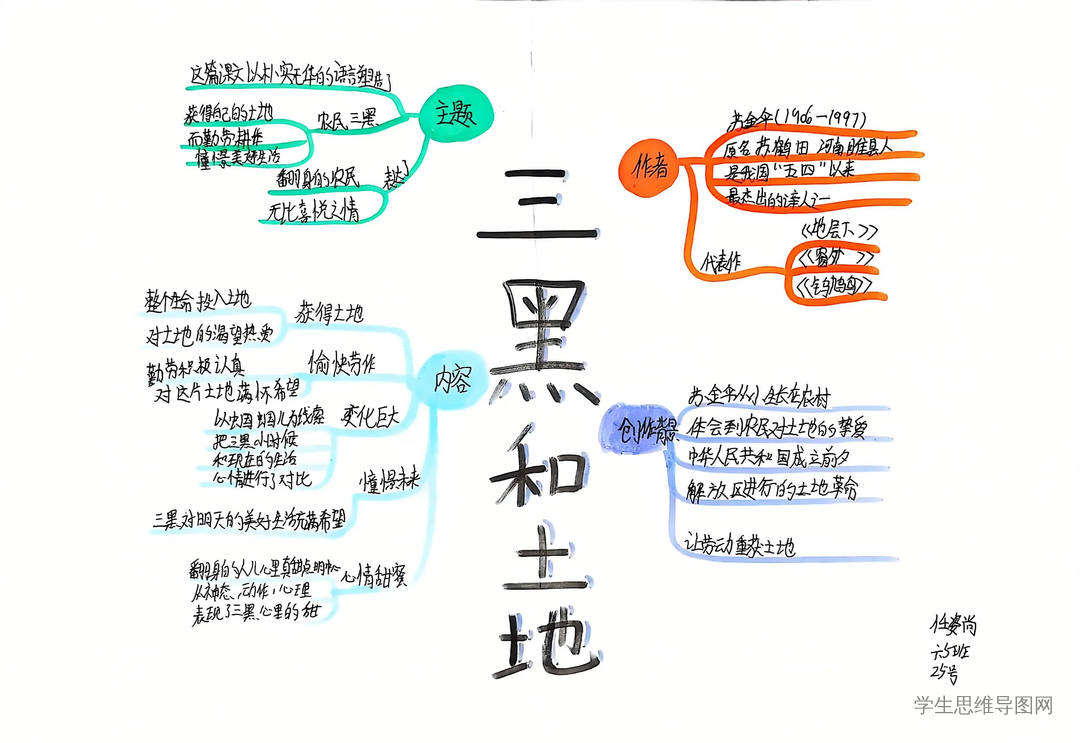 三黑和土地
主题
这篇课文以朴实无华的语言塑造了
农民三黑
获得自己的土地
而勤劳耕作
憧憬美好生活
表达了
翻身的农民
无比喜悦之情
作者
苏金伞(1906—1997)
原名苏鹤田 河南睢县人
是我国“五四”以来
最杰出的诗人之一
代表作
《地层下》
《窗外》
内容
获得土地
整个生命投入土地
对土地的渴望热爱
愉快劳作
勤劳积极认真
对这片土地满怀希望
变化巨大
把三黑小时候
和现在的生活
心情进行了对比
憧憬未来
三黑对明天的美好生活充满希望
心情甜蜜
从神态、动作、心理
表现了三黑心里的甜
创作背景
苏金伞从小生长在农村
体会到农民对土地的挚爱
中华人民共和国成立前夕
解放区进行的土地革命
让劳动重获土地
任姿尚
六5班
25号
学生思维导图网